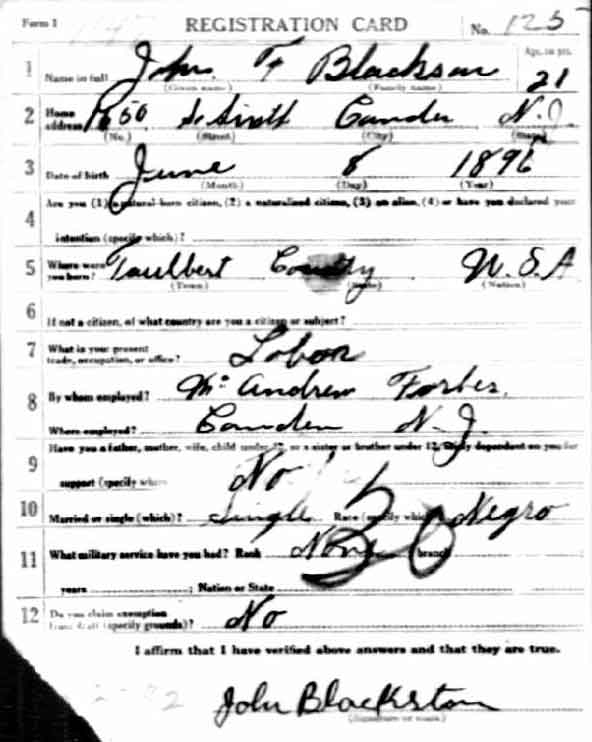 Form 1 REGISTRATION CARD No. 125
1 Name in full John F Blackson Age, in yrs. 21
(Given name) (Family name)
2 Home address 1650 S. Sixth Camden N.J.
(No.) (Street) (City) (State)
3 Date of birth June 8 1896
(Month) (Day) (Year)
4 Are you (1) a natural-born citizen, (2) a naturalized citizen, (3) an alien, (4) or have you declared your
intention (specify which)?
5 Where were you born? Taulbert County U.S.A
(Town) (State) (Nation)
6 If not a citizen, of what country are you a citizen or subject?
7 What is your present trade, occupation, or office? Labor
8 By whom employed? Mc Andrew Forbes.
Where employed? Camden N.J.
9 Have you a father, mother, wife, child under 12, or a sister or brother under 12, solely dependent on you for
support (specify which)? No
10 Married or single (which)? Single Race (specify which)? Negro
11 What military service have you had? Rank None branch
years ; Nation or State
12 Do you claim exemption from draft (specify grounds)? No
I affirm that I have verified above answers and that they are true.
John Blackston
(Signature or mark)